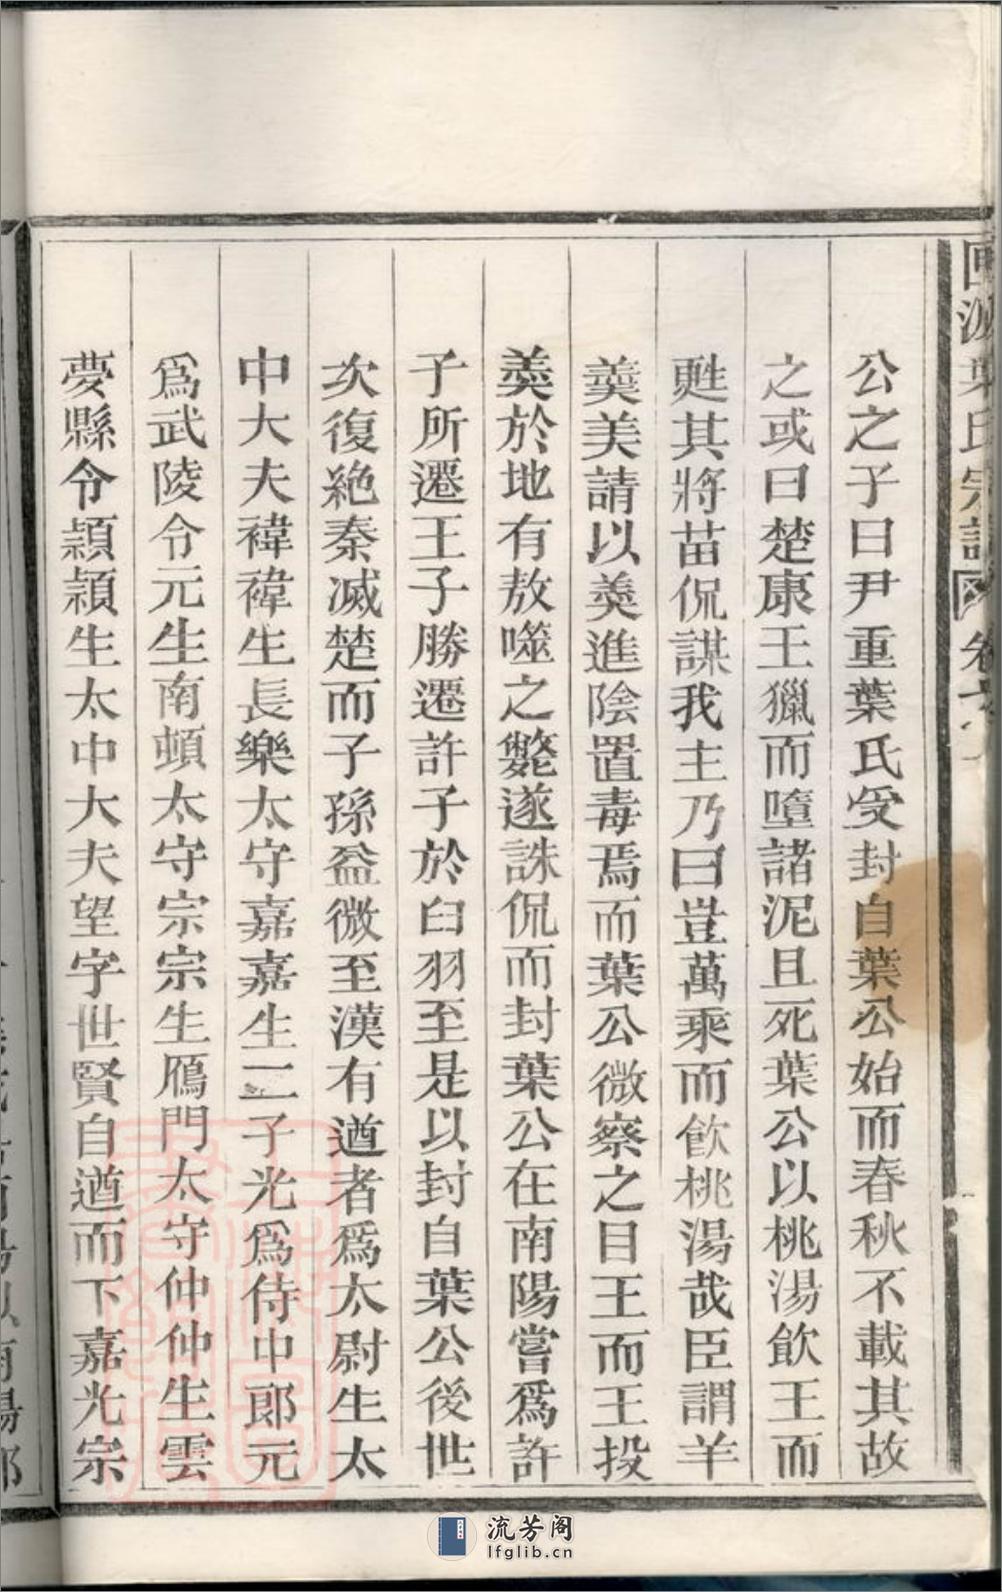 葉氏宗譜 卷
公之子曰尹重葉氏受封自葉公始而春秋不載其故
之或曰楚康王獵而噎諸泥且死葉公以桃湯飲王而
甦其將苗侃謀我主乃曰豈萬乘而飲桃湯哉臣謂羊
羹美請以羹進陰置毒焉而葉公微察之目王而王投
羹於地有敖噬之斃遂誅侃而封葉公在南陽嘗為許
子所遷王子勝遷許子於白羽至是以封自葉公後世
次復絶秦滅楚而子孫益微至漢有遒者為太尉生太
中大夫褘褘生長樂太守嘉嘉生二子光為侍中郎元
為武陵令元生南頓太守宗宗生鴈門太守仲仲生雲
夢縣令頴頴生太中大夫望字世賢自遒而下嘉光宗
流芳阁
lfglib.cn